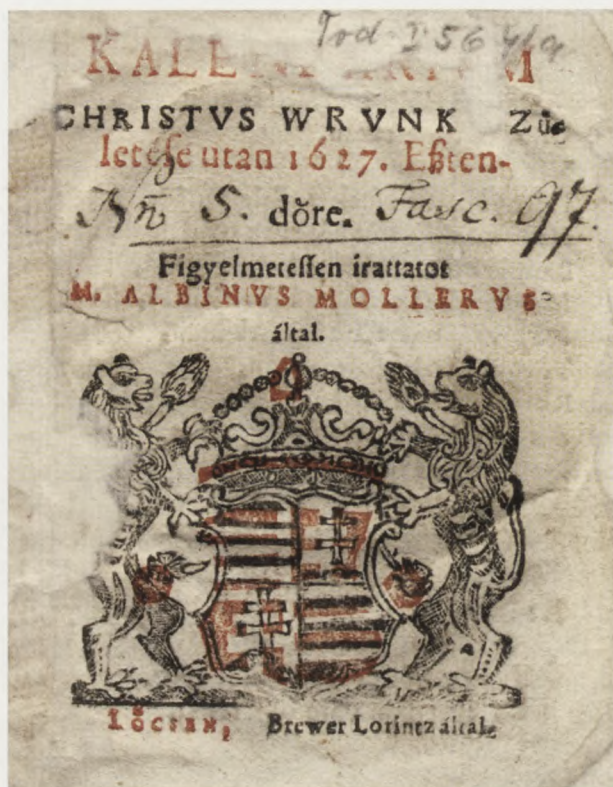 Tod. I 56
KALENDARIVM
CHRISTVS WRVNK Zůe
leteſe utan 1627. Eßten-
Nr̃ 5. dŏre. Fasc. 97.
Figyelmeteſſen irattatot
M. ALBINVS MOLLERVS
által.
LŐCSEN, Brewer Lorintz által.